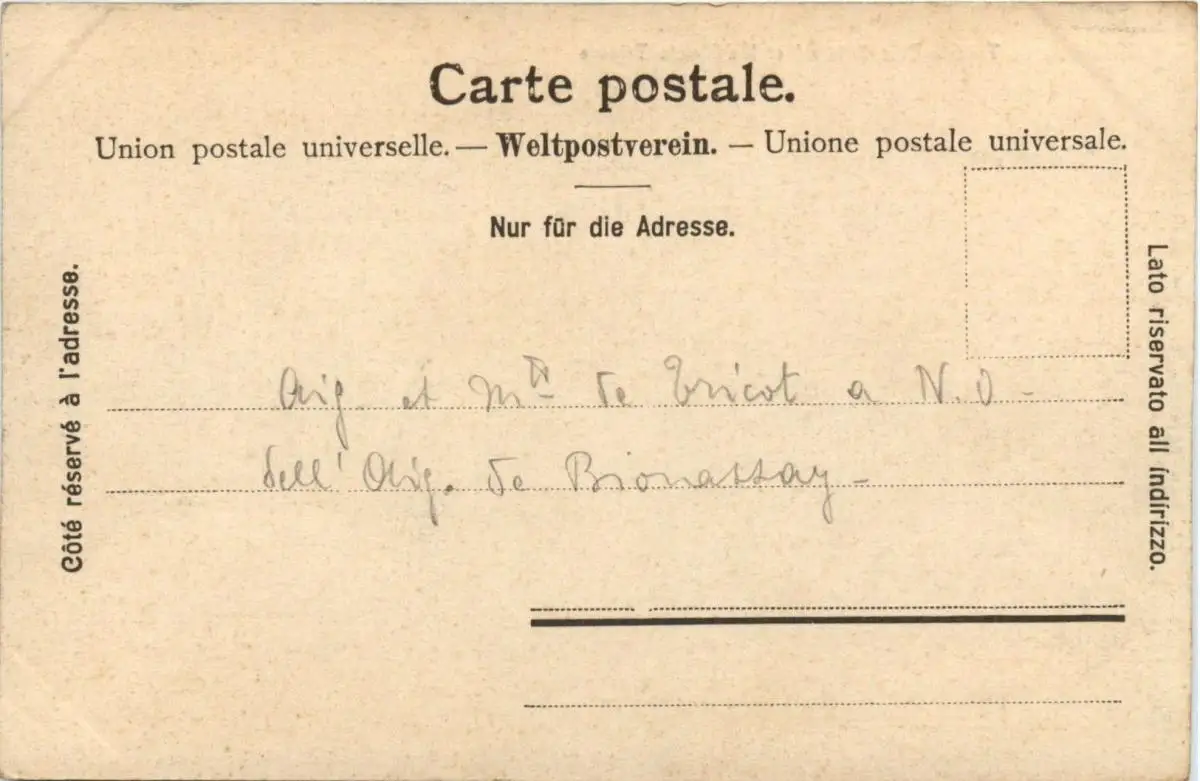 Carte postale.
Union postale universelle. — Weltpostverein. — Unione postale universale.
Nur für die Adresse.
Côté réservé à l'adresse.
Lato riservato all indirizzo.
Aig. et de Tricot a N.O -
dell' Aig. de Bionassay -